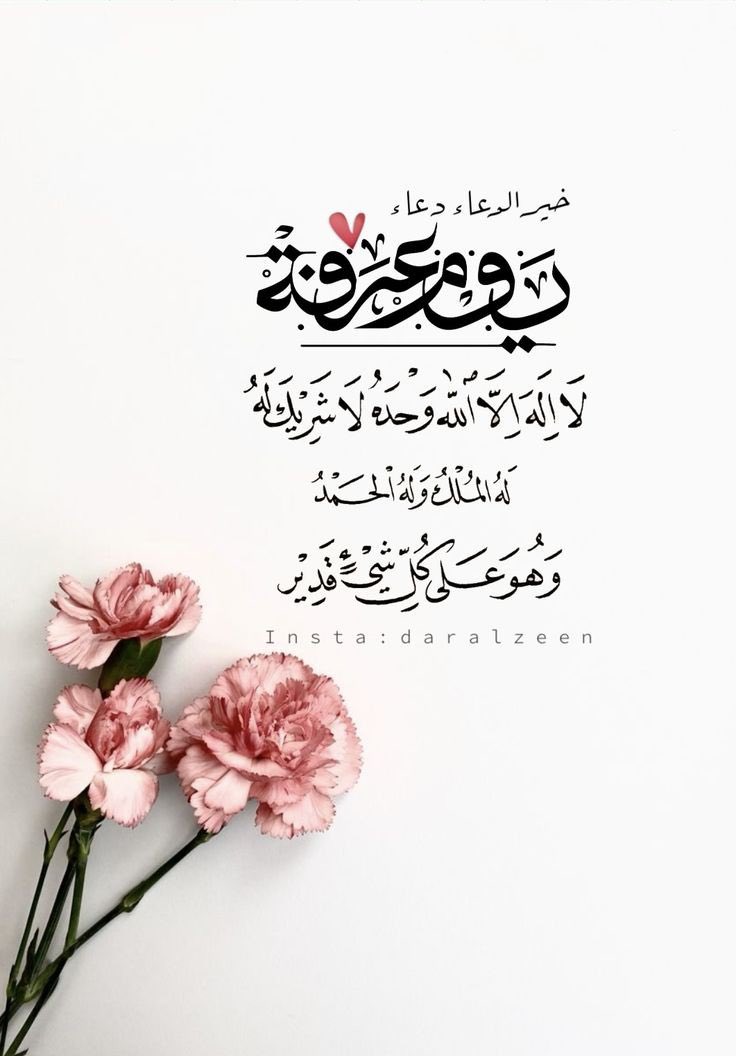 خير الدعاء دعاء
يوم عرفة
لَا اِلَهَ اِلَّا اللّٰه وَحْدَهُ لَا شَرِيْكَ لَهُ
لَهُ المُلْكُ وَلَهُ الْحَمْدُ
وَهُوَ عَلَى كُلِّ شَيْءٍ قَدِيْر
Insta:daralzeen